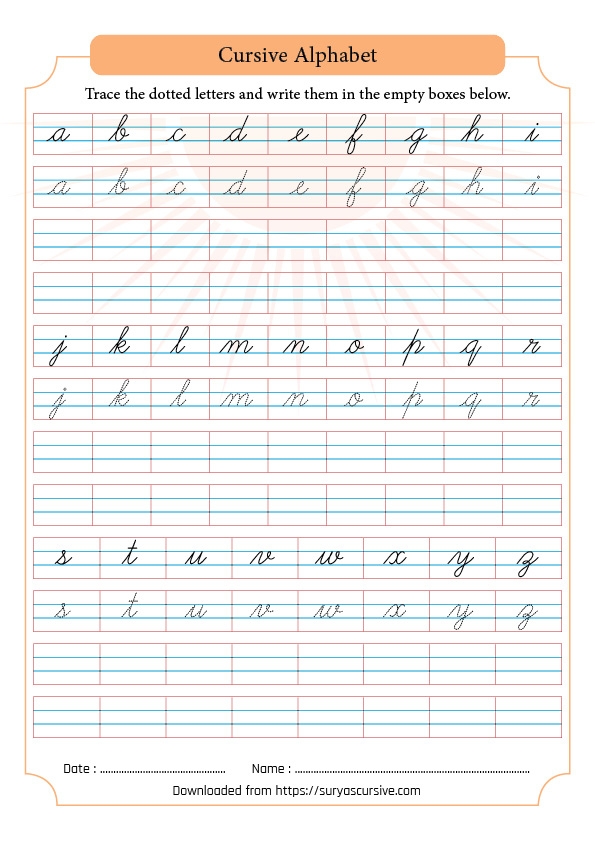 Cursive Alphabet
Trace the dotted letters and write them in the empty boxes below.
a b c d e f g h i
a b c d e f g h i
j k l m n o p q r
j k l m n o p q r
s t u v w x y z
s t u v w x y z
Date : ................................................ Name : ..........................................................................................
Downloaded from https://suryascursive.com